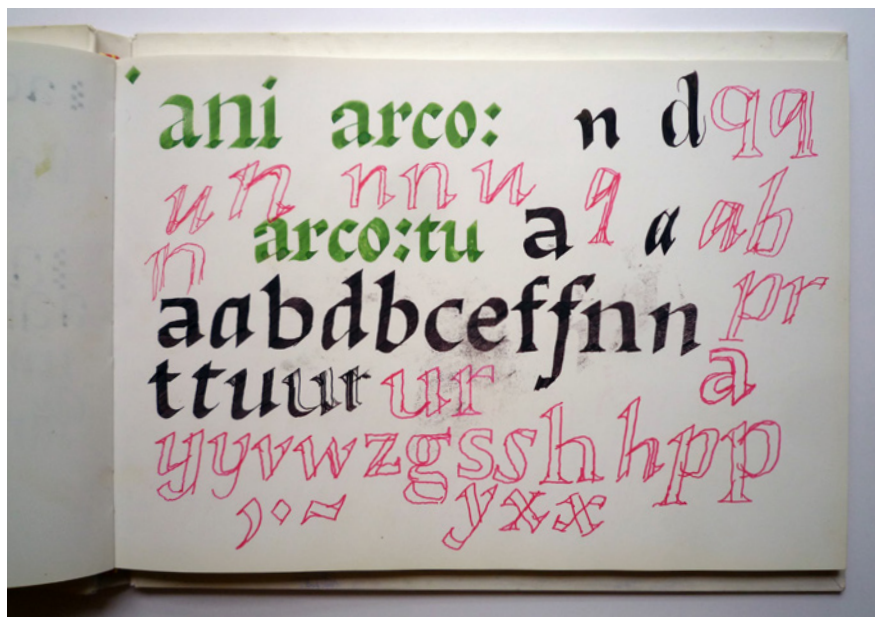 ani arco: n d q q
u n n n u q
n arco:tu a a a b
a a b d b c e f f n n p r
t t u u u r u r a
y y v w z g s s h h p p
) · ~ y x x